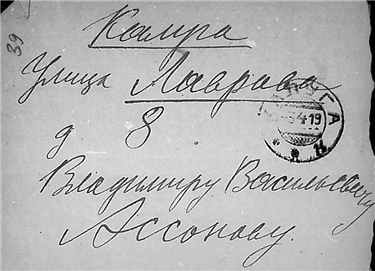 39
Калуга
Улица Лаврова
д 8
Владимиру Васильевичу
Ассонову.
4 19